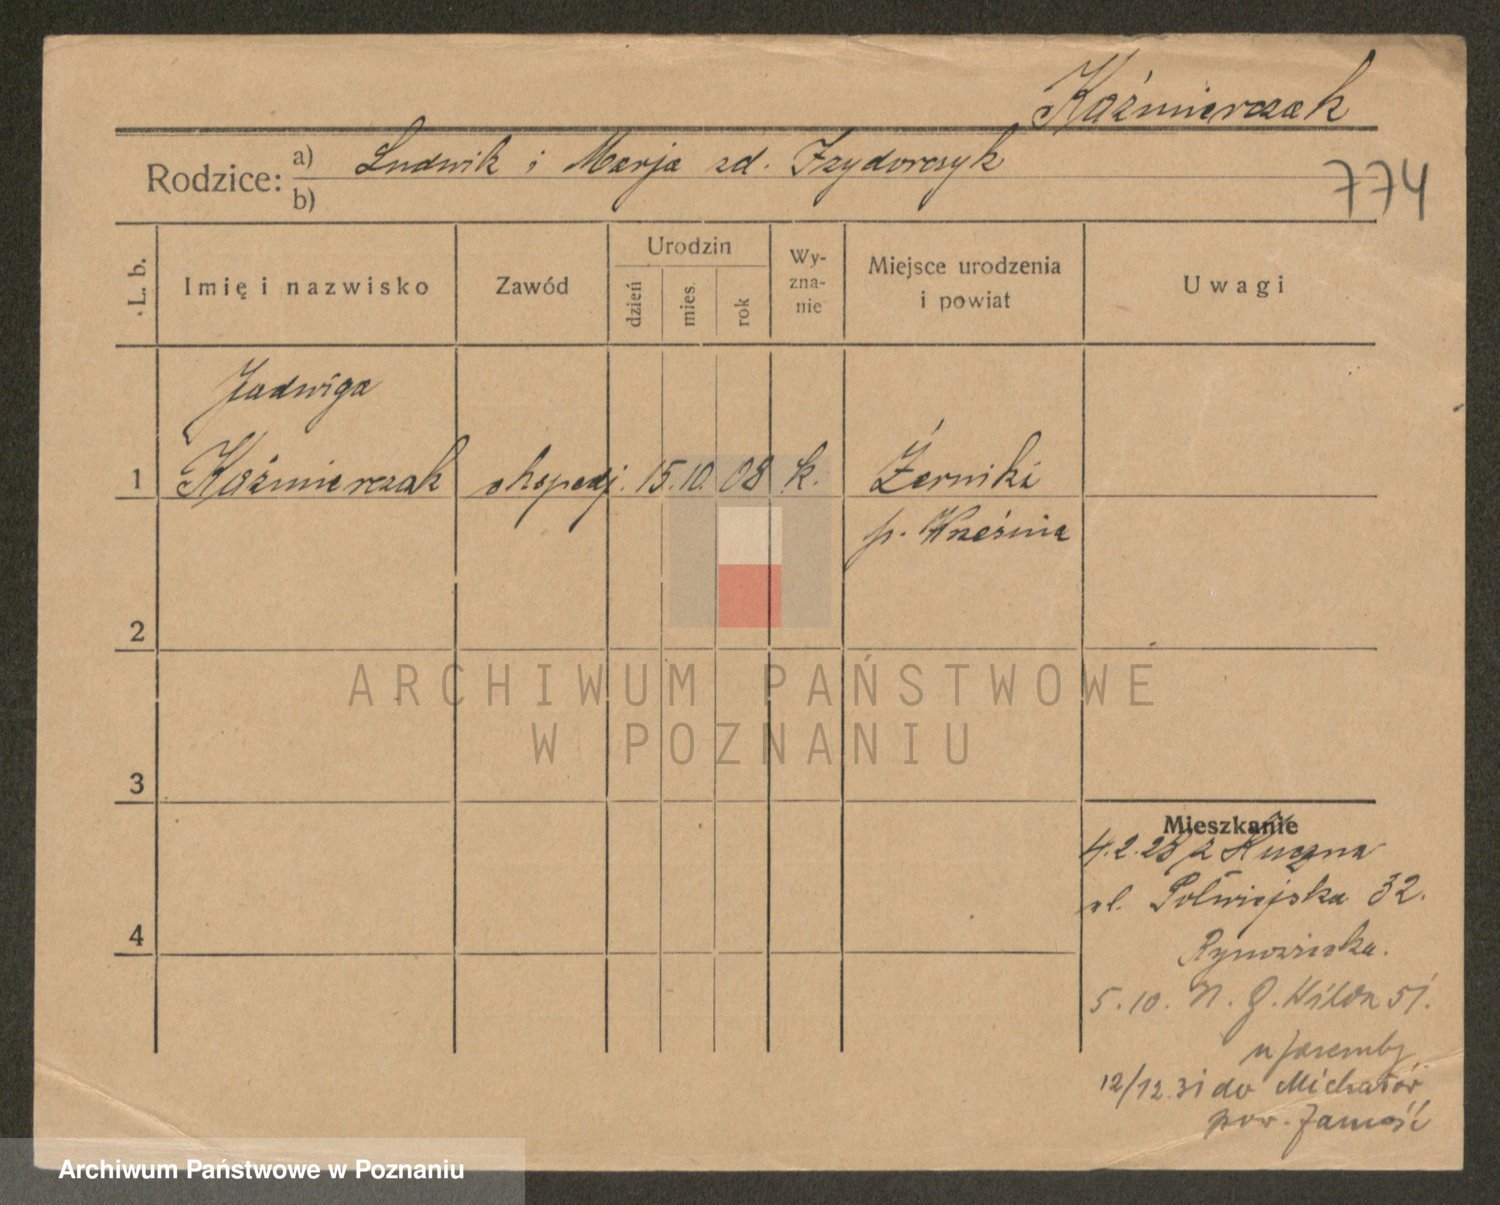 Kaźmierczak
Rodzice: a) Ludwik i Marja zd. Izydorczyk
b)
774
L. b.
Imię i nazwisko
Zawód
Urodzin
dzień
mies.
rok
Wy-
zna-
nie
Miejsce urodzenia
i powiat
Uwagi
Jadwiga
1 Kaźmierczak 15. 10 08 k. Żerniki
p. Września
2
3
Mieszkanie
4.2.28 z
ul. Półwiejska 32.
4
5.10. N. G. Wilda 51.
u
12/12.31 do Michałów
pow. Zamość
ARCHIWUM PAŃSTWOWE
W POZNANIU
Archiwum Państwowe w Poznaniu